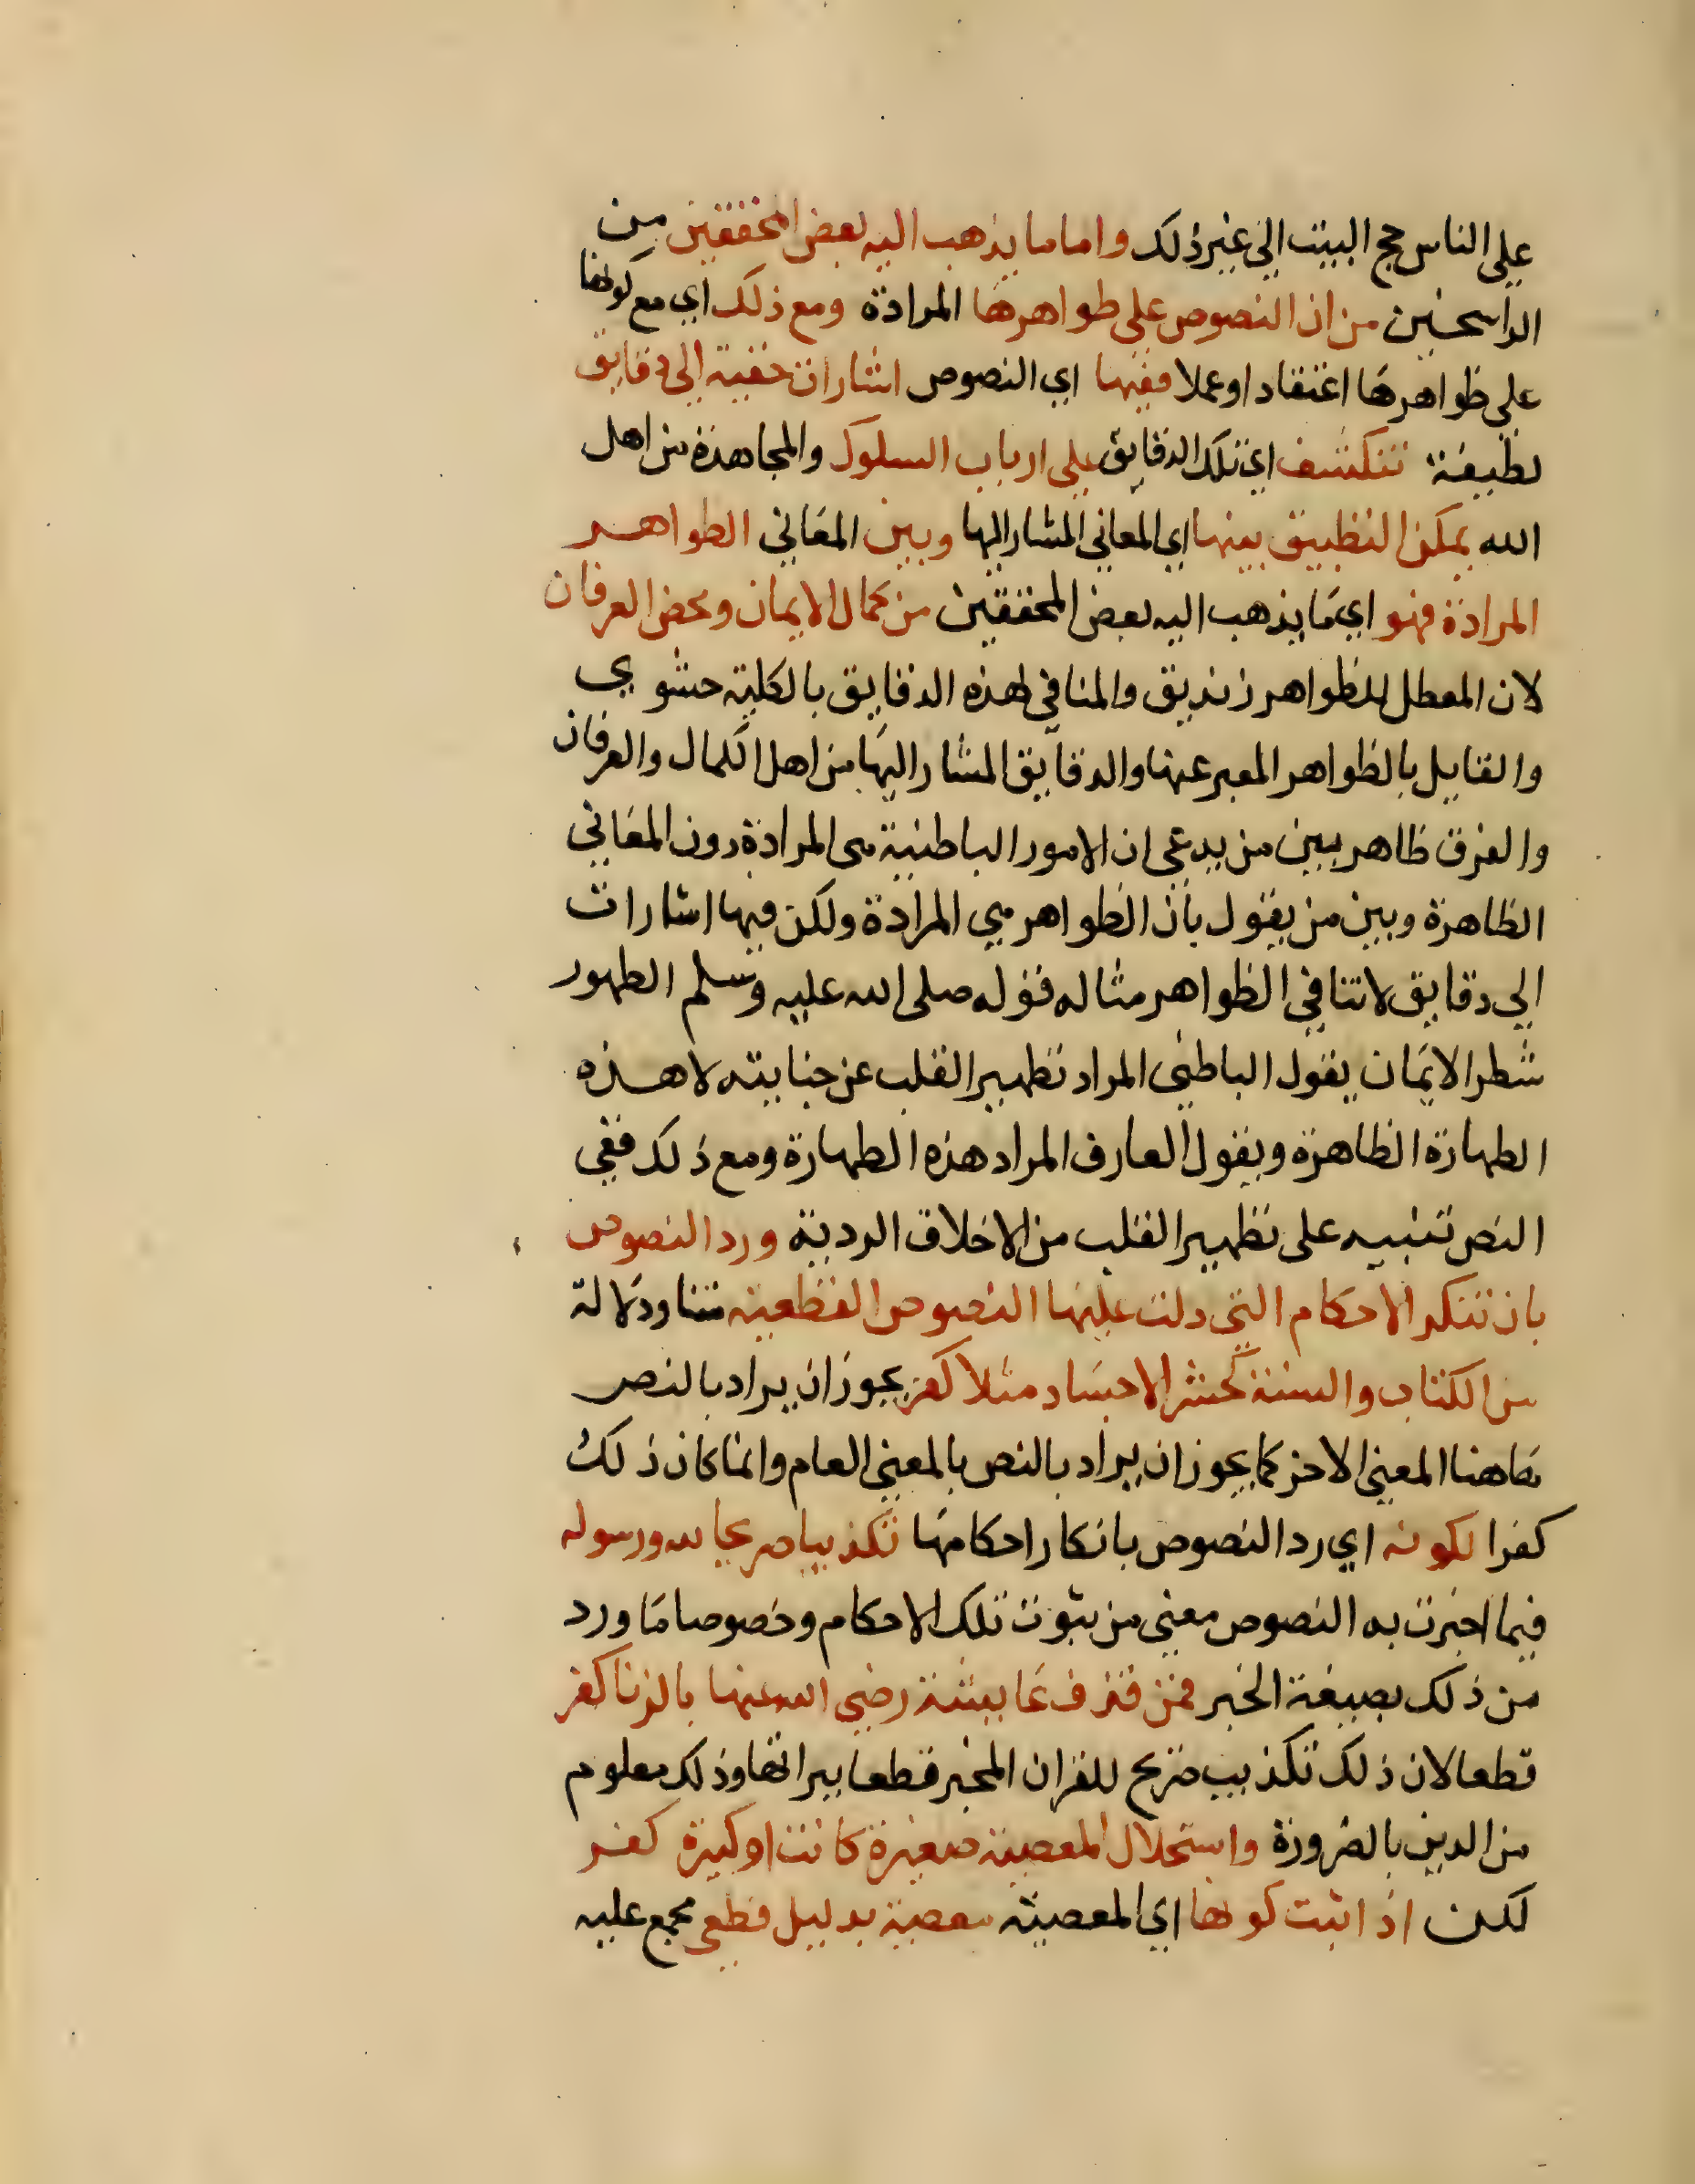 على الناس حج البيت الي غير ذلك واما ما يذهب اليه بعض المحققين من
الراسخين من ان النصوص على ظواهرها المرادة ومع ذلك اي مع كونها
على ظواهرها اعتقادا وعملا ففيها اي النصوص اشارات خفية الى دقايق
لطيفة تنكشف اي تلك الدقايق على ارباب السلوك والمجاهدة من اهل
الله يمكن التطبيق بينها اي المعاني المشار اليها وبين المعاني الظواهر
المرادة فهو اي ما يذهب اليه بعض المحققين من كمال الايمان ومحض العرفان
لان المعطل للظواهر زنديق والمنافي لهذه الدقايق بالكلية حشوي
والقايل بالظواهر المعبر عنها والدقايق المشار اليها من اهل الكمال والعرفان
والفرق ظاهر بين من يدعي ان الامور الباطنية هي المرادة دون المعاني
الظاهرة وبين من يقول بان الظواهر هي المرادة ولكن فيها اشارات
الي دقايق لا تنافي الظواهر مثاله قوله صلى الله عليه وسلم الطهور
شطر الايمان يقول الباطني المراد تطهير القلب عن جنابته لا هذه
الطهارة الظاهرة ويقول العارف المراد هذه الطهارة ومع ذلك ففي
النص تنبيه على تطهير القلب من الاخلاق الردية ورد النصوص
بان تنكر الاحكام التي دلت عليها النصوص القطعية متنا ودلالة
من الكتاب والسنة كحشر الاجساد مثلا كفر يجوز ان يراد بالنص
هاهنا المعني الاخر كما يجوز ان يراد بالنص بالمعني العام وانما كان ذلك
كفرا لكونه اي رد النصوص بانكار احكامها تكذيبا صريحا لله ورسوله
فيما اخبرت به النصوص معني من ثبوت تلك الاحكام وخصوصا ما ورد
من ذلك بصيغة الخبر فمن قذف عايشة رضي الله عنها بالزنا كفر
قطعا لان ذلك تكذيب صريح للقران المخبر قطعا ببراتها وذلك معلوم
من الدين بالضرورة واستحلال المعصية صغيرة كانت او كبيرة كفر
لكن اذا ثبت كونها اي المعصية معصية بدليل قطعي مجمع عليه